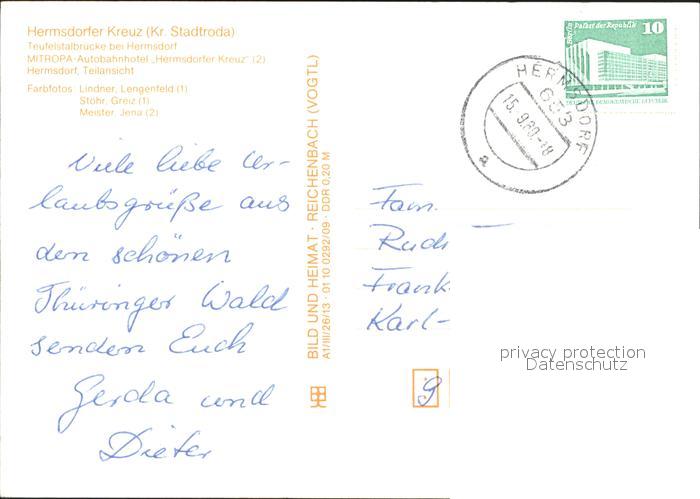 Hermsdorfer Kreuz (Kr. Stadtroda)
Teufelstalbrücke bei Hermsdorf
MITROPA-Autobahnhotel „Hermsdorfer Kreuz" (2)
Hermsdorf, Teilansicht
Farbfotos: Lindner, Lengenfeld (1)
Stöhr, Greiz (1)
Meister, Jena (2)
Viele liebe Ur-
laubsgrüße aus
dem schönen
Thüringer Wald
senden Euch
Gerda und
Dieter
BILD UND HEIMAT · REICHENBACH (VOGTL)
A1/III/26/13 · 01 10 0292/09 · DDR 0,20 M
Berlin Palast der Republik
10
HERMSDORF
653
15.9.80.-18
a
Fam.
Rudi
Frank.
Karl-
9
privacy protection
Datenschutz